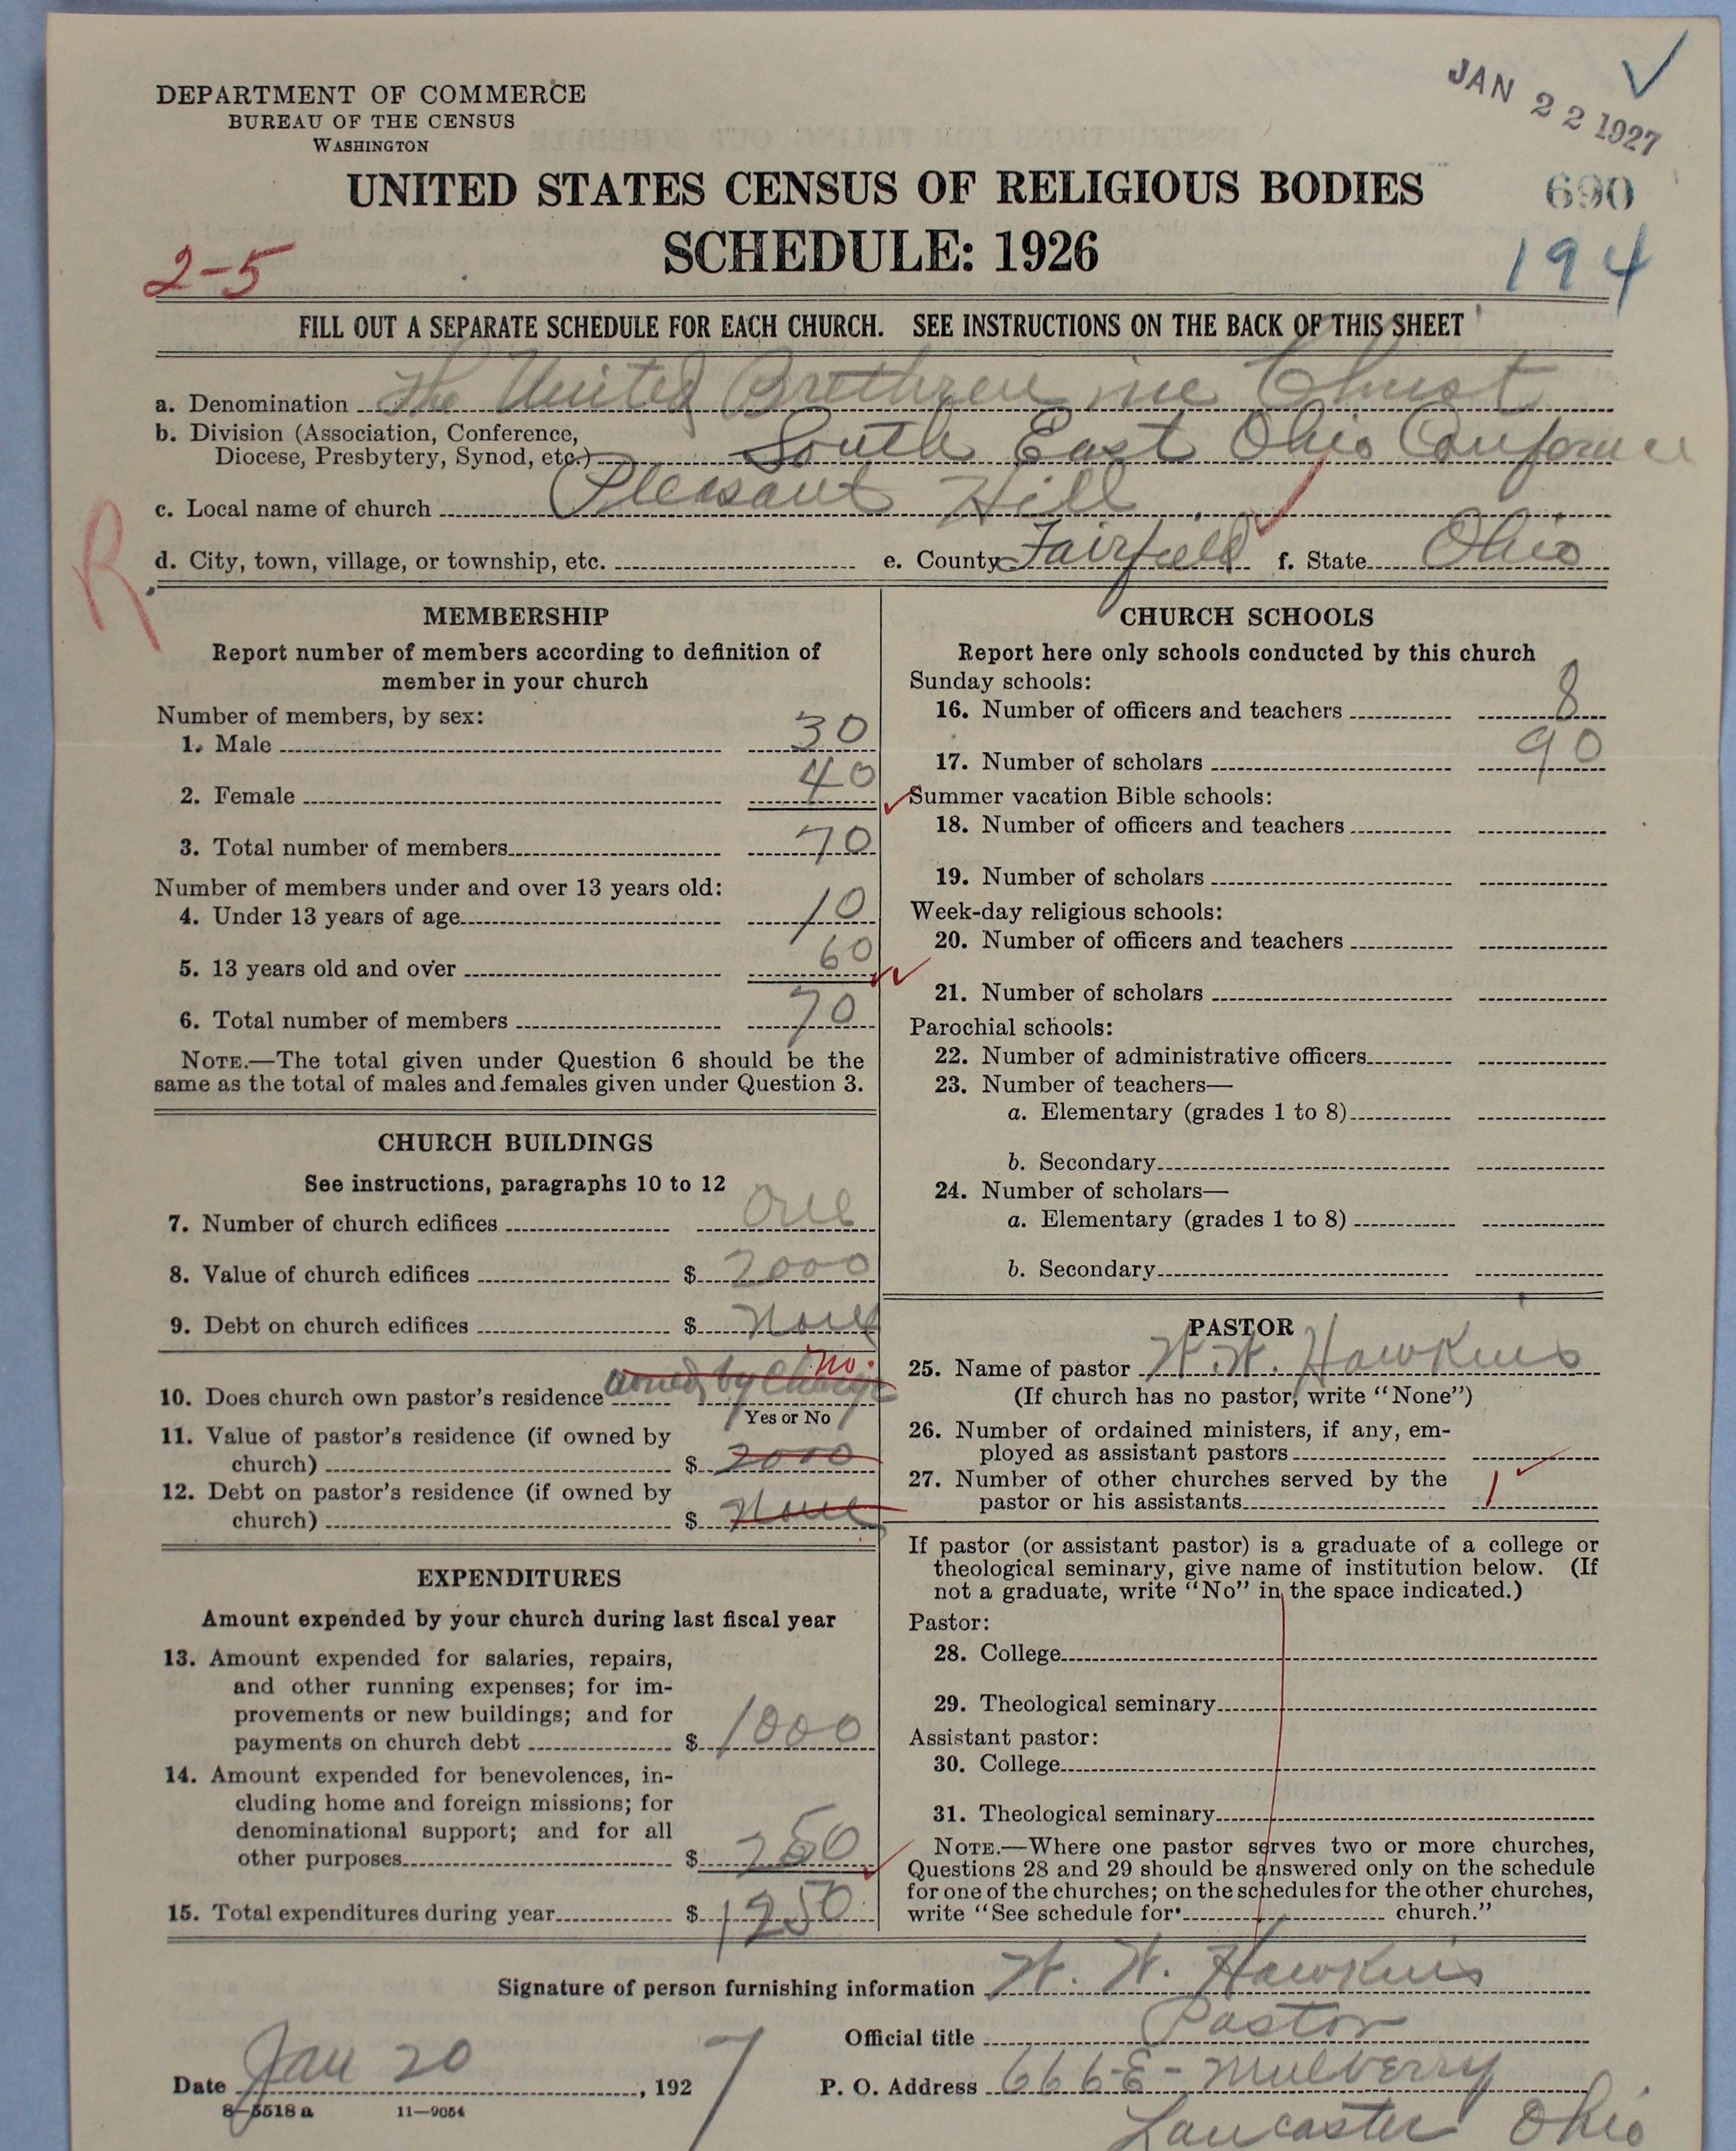 DEPARTMENT OF COMMERCE
BUREAU OF THE CENSUS
WASHINGTON
JAN 22 1927
UNITED STATES CENSUS OF RELIGIOUS BODIES
690
SCHEDULE: 1926
2-5
194
FILL OUT A SEPARATE SCHEDULE FOR EACH CHURCH. SEE INSTRUCTIONS ON THE BACK OF THIS SHEET
a. Denomination The United Brethren in Christ
b. Division (Association, Conference,
Diocese, Presbytery, Synod, etc.) South East Ohio Conference
c. Local name of church Pleasant Hill
d. City, town, village, or township, etc. e. County Fairfield f. State Ohio
R
MEMBERSHIP
Report number of members according to definition of
member in your church
Number of members, by sex:
1. Male 30
2. Female 40
3. Total number of members 70
Number of members under and over 13 years old:
4. Under 13 years of age 10
5. 13 years old and over 60
6. Total number of members 70
NOTE.—The total given under Question 6 should be the
same as the total of males and females given under Question 3.
CHURCH BUILDINGS
See instructions, paragraphs 10 to 12
7. Number of church edifices One
8. Value of church edifices $ 2000
9. Debt on church edifices $ None
no.
10. Does church own pastor's residence owned by Charge
Yes or No
11. Value of pastor's residence (if owned by
church) $ 2000
12. Debt on pastor's residence (if owned by
church) $ None
EXPENDITURES
Amount expended by your church during last fiscal year
13. Amount expended for salaries, repairs,
and other running expenses; for im-
provements or new buildings; and for
payments on church debt $ 1000
14. Amount expended for benevolences, in-
cluding home and foreign missions; for
denominational support; and for all
other purposes $ 250
15. Total expenditures during year $ 1250
CHURCH SCHOOLS
Report here only schools conducted by this church
Sunday schools:
16. Number of officers and teachers 8
17. Number of scholars 90
Summer vacation Bible schools:
18. Number of officers and teachers
19. Number of scholars
Week-day religious schools:
20. Number of officers and teachers
21. Number of scholars
Parochial schools:
22. Number of administrative officers
23. Number of teachers—
a. Elementary (grades 1 to 8)
b. Secondary
24. Number of scholars—
a. Elementary (grades 1 to 8)
b. Secondary
PASTOR
25. Name of pastor W. W. Hawkins
(If church has no pastor, write "None")
26. Number of ordained ministers, if any, em-
ployed as assistant pastors
27. Number of other churches served by the
pastor or his assistants 1
If pastor (or assistant pastor) is a graduate of a college or
theological seminary, give name of institution below. (If
not a graduate, write "No" in the space indicated.)
Pastor:
28. College
29. Theological seminary
Assistant pastor:
30. College
31. Theological seminary
NOTE.—Where one pastor serves two or more churches,
Questions 28 and 29 should be answered only on the schedule
for one of the churches; on the schedules for the other churches,
write "See schedule for church."
Signature of person furnishing information W. W. Hawkins
Official title Pastor
Date Jan 20, 1927
P. O. Address 666 E - Mulberry
Lancaster Ohio
8-5518 a 11-9054